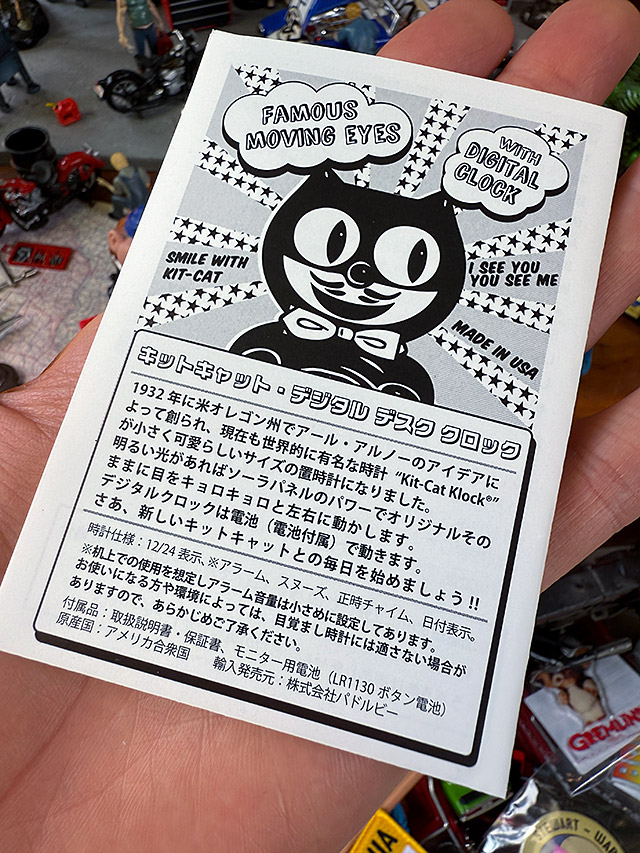 FAMOUS
MOVING EYES
WITH
DIGITAL
CLOCK
SMILE WITH
KIT-CAT
I SEE YOU
YOU SEE ME
MADE IN USA
キットキャット・デジタル デスク クロック
1932 年に米オレゴン州でアール・アルノーのアイデアに
よって創られ、現在も世界的に有名な時計 “Kit-Cat Klock®”
が小さく可愛らしいサイズの置時計になりました。
明るい光があればソーラパネルのパワーでオリジナルその
ままに目をキョロキョロと左右に動かします。
デジタルクロックは電池（電池付属）で動きます。
さあ、新しいキットキャットとの毎日を始めましょう !!
時計仕様：12/24 表示、※アラーム、スヌーズ、正時チャイム、日付表示。
※机上での使用を想定しアラーム音量は小さめに設定してあります。
お使いになる方や環境によっては、目覚まし時計には適さない場合が
ありますので、あらかじめご了承ください。
付属品：取扱説明書・保証書、モニター用電池（LR1130 ボタン電池）
原産国：アメリカ合衆国 輸入発売元：株式会社パドルビー
GREMLINS
STEWART – WA